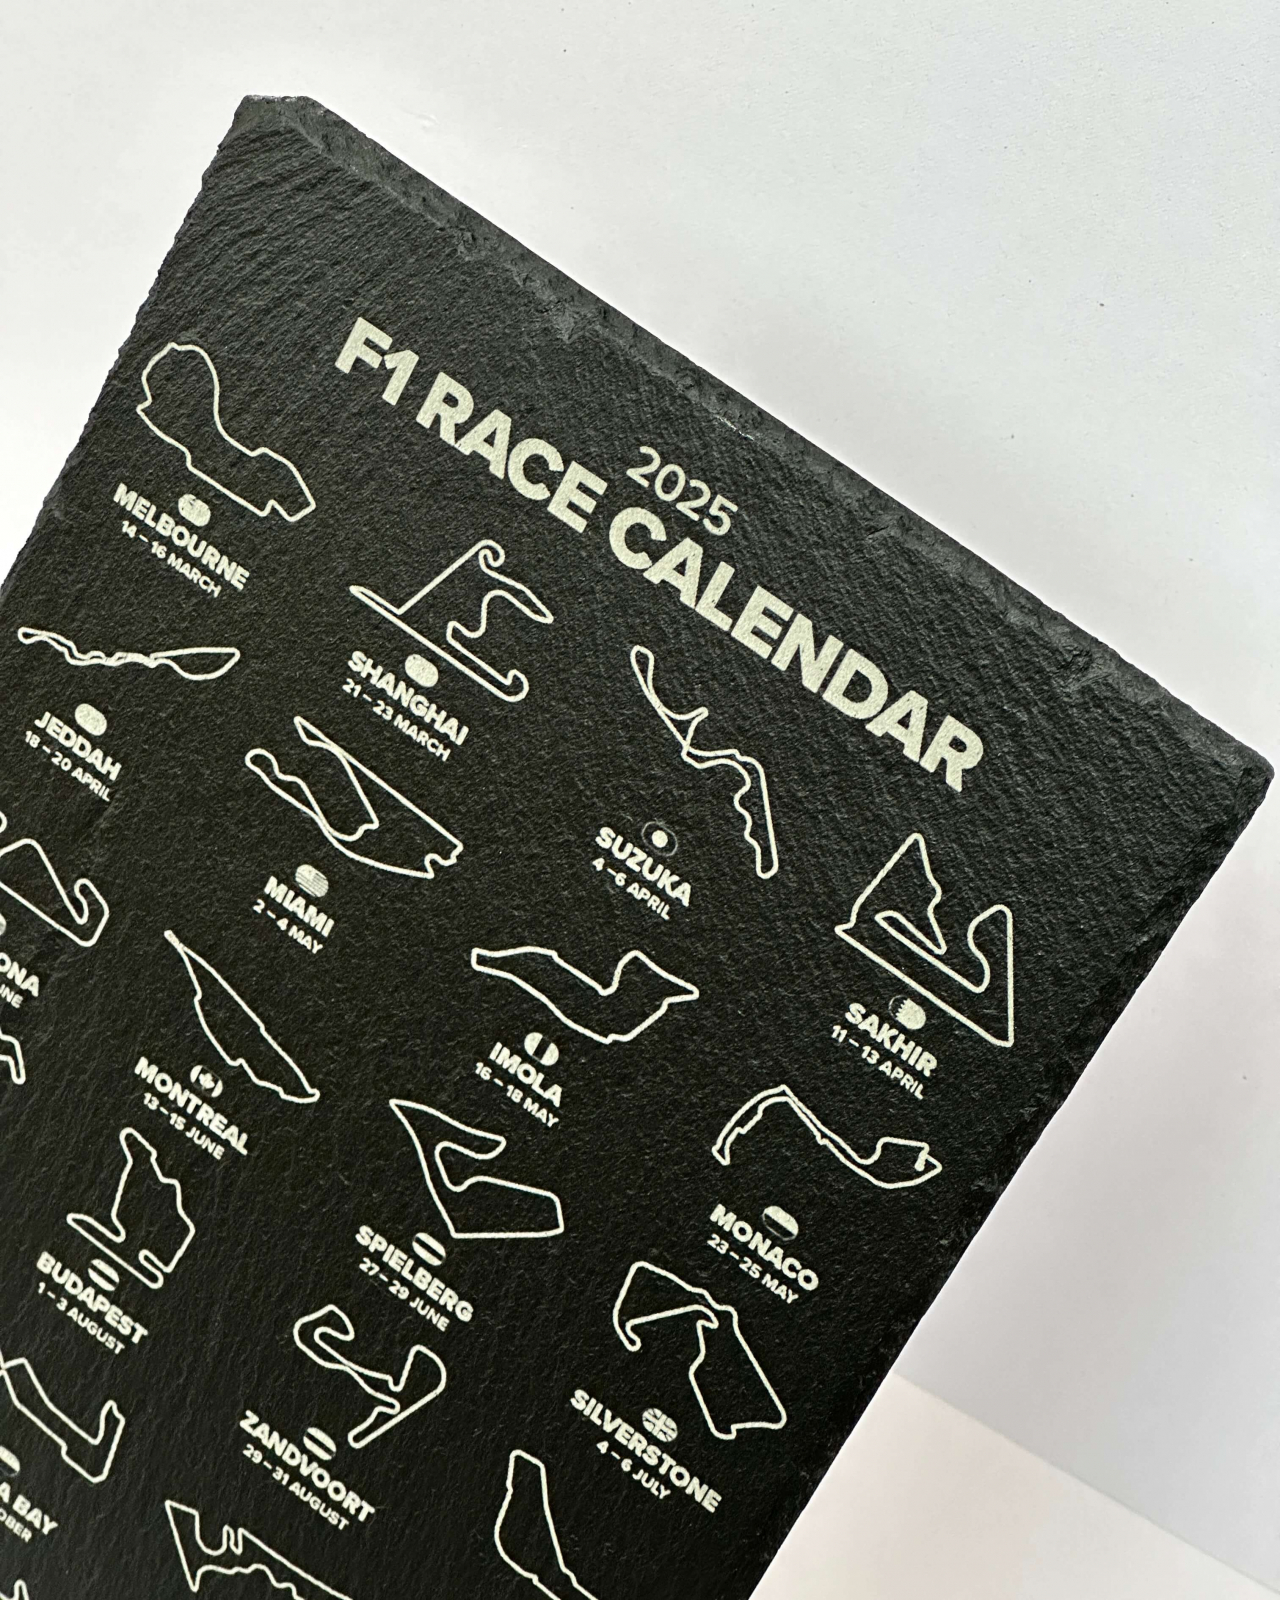 2025
F1 RACE CALENDAR
MELBOURNE
14 – 16 MARCH
SHANGHAI
21 – 23 MARCH
SUZUKA
4 – 6 APRIL
SAKHIR
11 – 13 APRIL
JEDDAH
18 – 20 APRIL
MIAMI
2 – 4 MAY
IMOLA
16 – 18 MAY
MONACO
23 – 25 MAY
ONA
INE
MONTREAL
13 – 15 JUNE
SPIELBERG
27 – 29 JUNE
SILVERSTONE
4 – 6 JULY
BUDAPEST
1 – 3 AUGUST
ZANDVOORT
29 – 31 AUGUST
A BAY
OBER